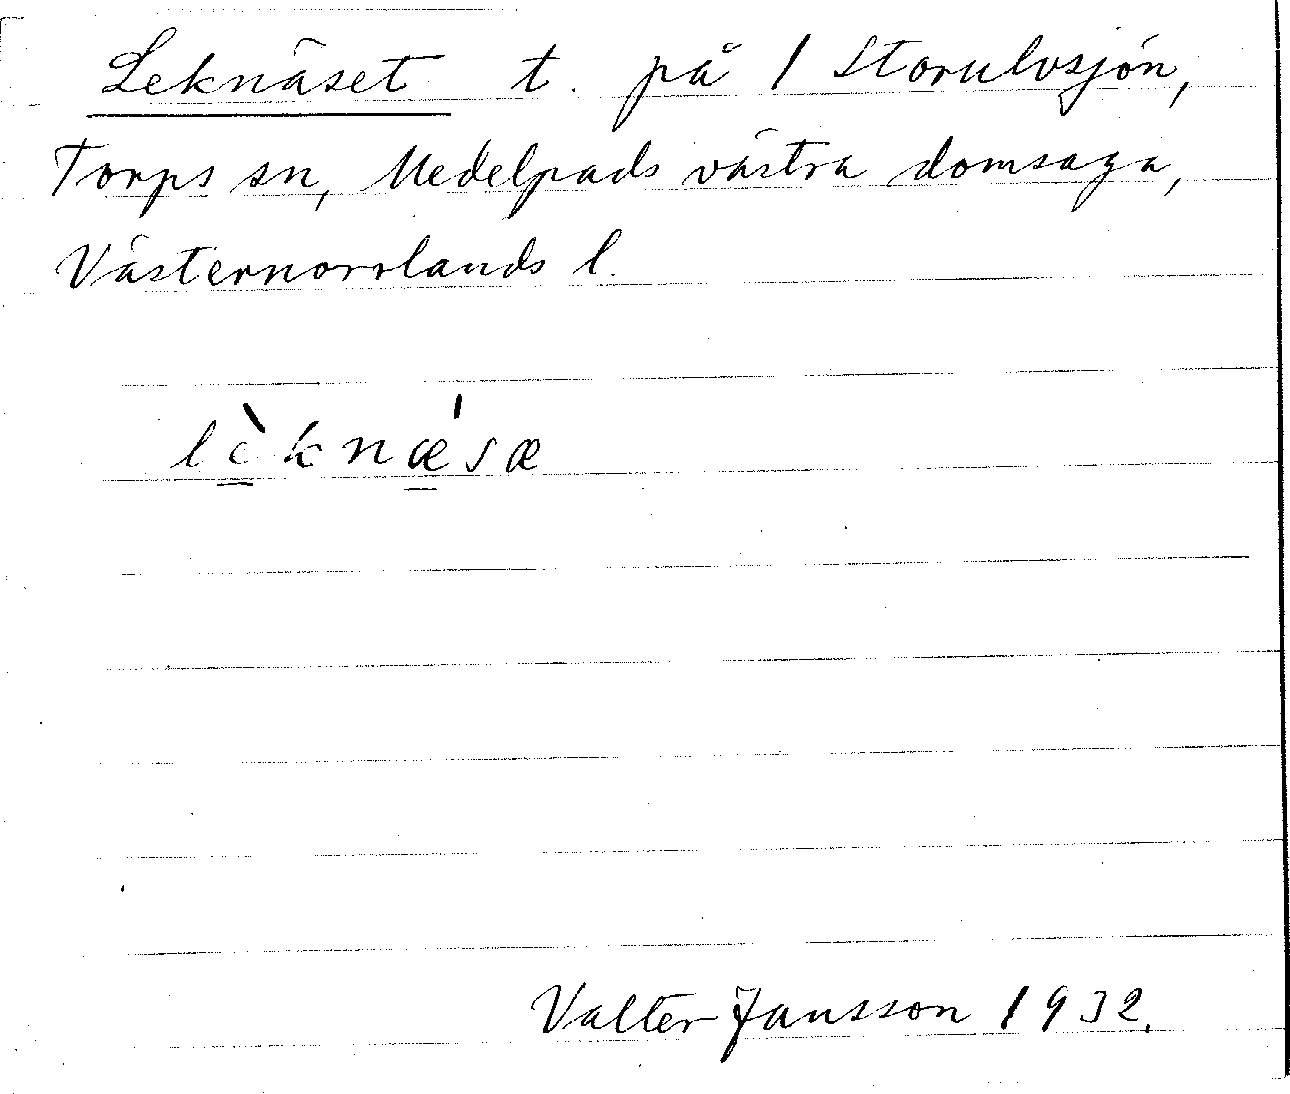 Leknäset t. på 1 Storulvsjön,
Torps sn, Medelpads västra domsaga,
Västernorrlands l.
lèknǽsæ
Valter Jansson 1932.